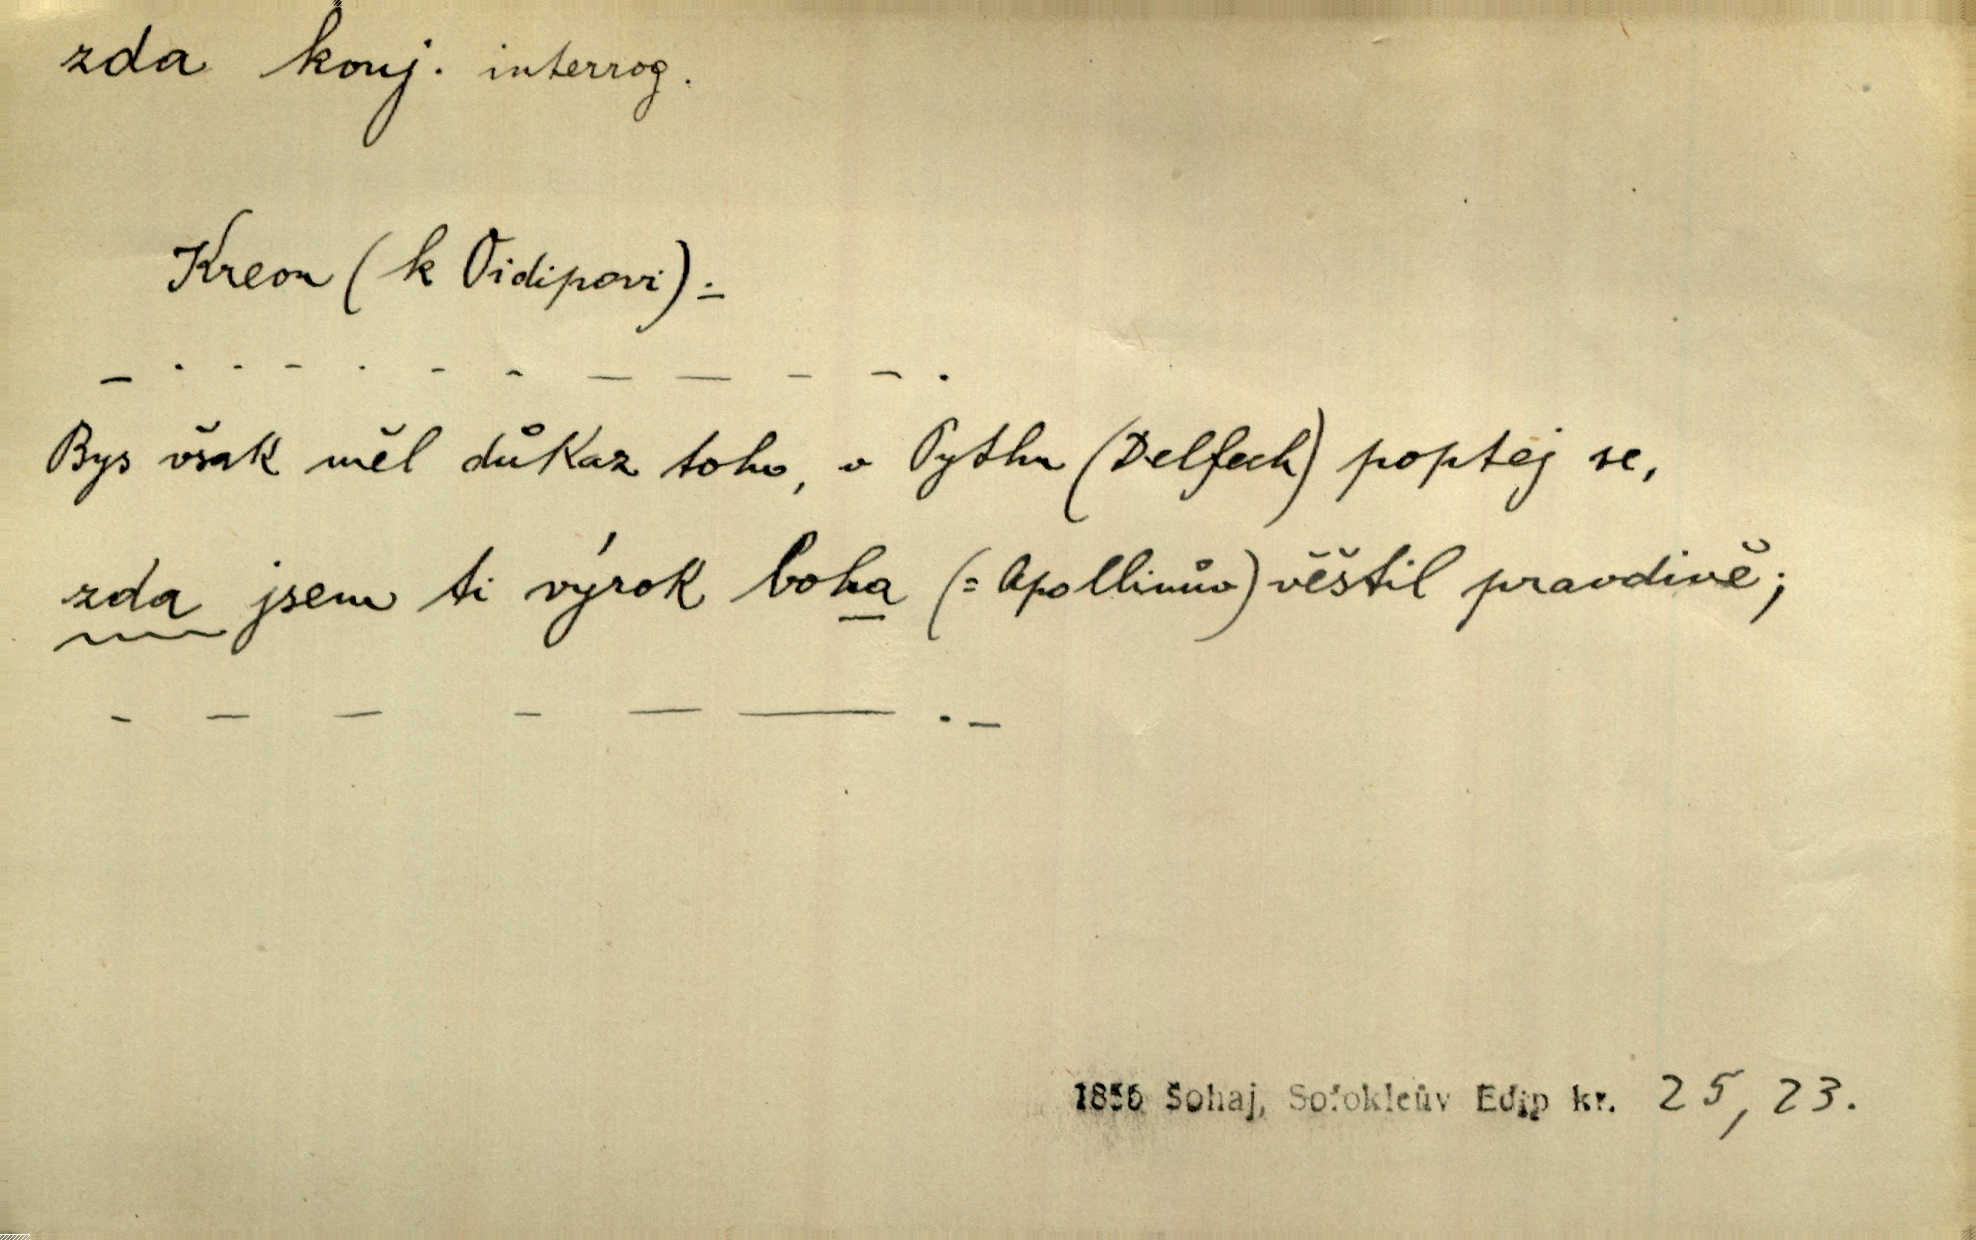 zda konj. interrog.
Kreon (k Oidipovi):
— . . - . - - — — - - .
Bys však měl důkaz toho, v Pythu (Delfech) poptej se,
zda jsem ti výrok boha (= Apollinův) věštil pravdivě;
- — — - — — . —
1856 Šohaj, Sofokleův Edip kr. 25, 23.